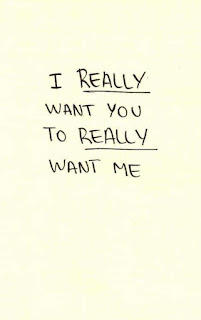 I REALLY
WANT YOU
TO REALLY
WANT ME